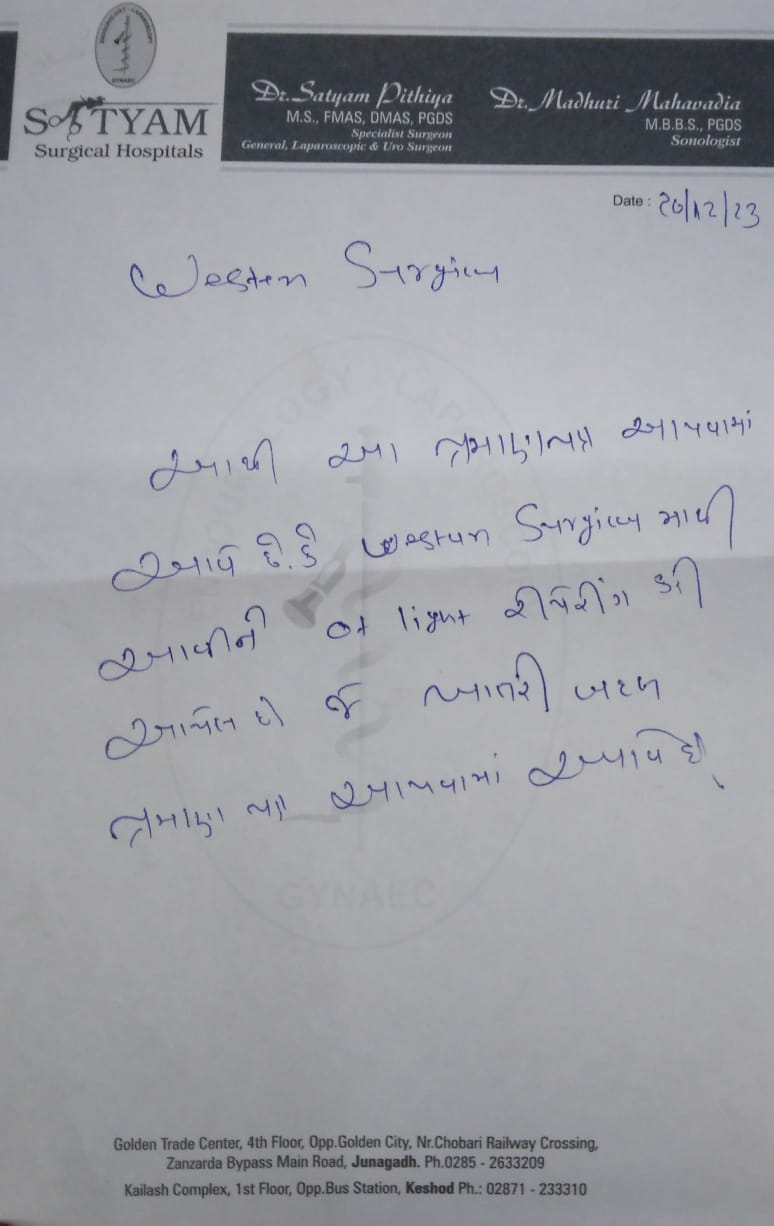 SATYAM
Surgical Hospitals
GYNAEC
Dr. Satyam Pithiya
M.S., FMAS, DMAS, PGDS
Specialist Surgeon
General, Laparoscopic & Uro Surgeon
Dr. Madhuri Mahavadia
M.B.B.S., PGDS
Sonologist
Date : 20/12/23
Western Surgical
આથી આ પ્રમાણપત્ર આપવામાં
આવે છે. કે Western Surgical માથી
આવીને ot light રીપેરીંગ કરી
આપેલ છે જે ખાતરી બદલ
પ્રમાણ પત્ર આપવામાં આવે છે
GYNAEC
Golden Trade Center, 4th Floor, Opp.Golden City, Nr.Chobari Railway Crossing,
Zanzarda Bypass Main Road, Junagadh. Ph.0285 - 2633209
Kailash Complex, 1st Floor, Opp.Bus Station, Keshod Ph.: 02871 - 233310